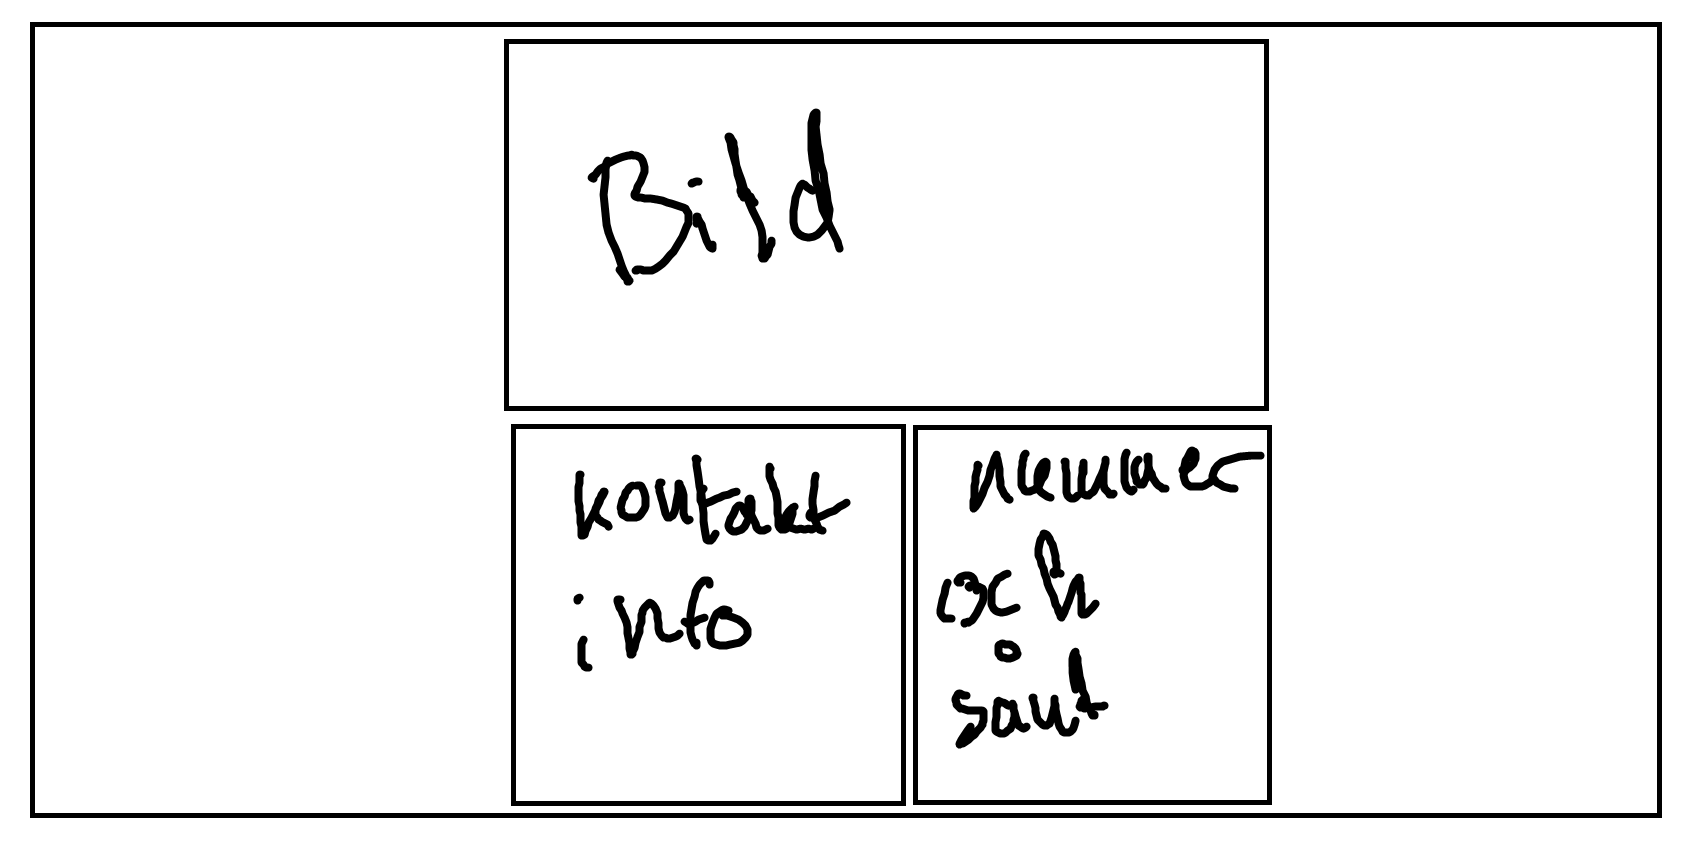 Bild
kontakt
info
nummer
och
sånt